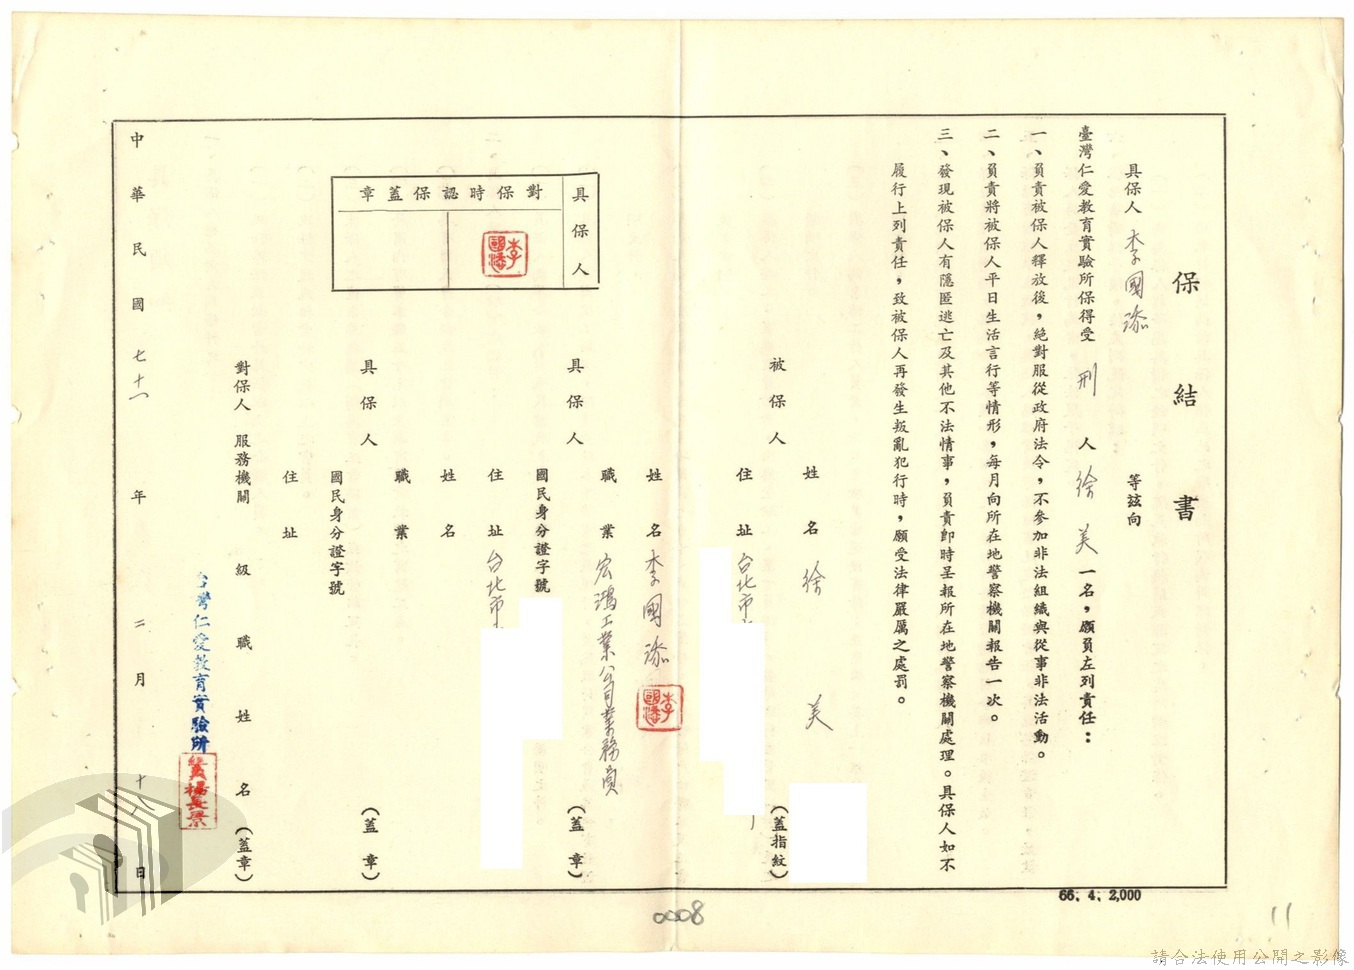 保結書
具保人 李國添 等玆向
臺灣仁愛教育實驗所保得受 刑 人 徐美 一名,願負左列責任:
一、負責被保人釋放後,絕對服從政府法令,不參加非法組織與從事非法活動。
二、負責將被保人平日生活言行等情形,每月向所在地警察機關報告一次。
三、發現被保人有隱匿逃亡及其他不法情事,負責即時呈報所在地警察機關處理。具保人如不
履行上列責任,致被保人再發生叛亂犯行時,願受法律嚴厲之處罰。
姓名 徐美
被保人 (蓋指紋)
住址 台北市
姓名 李國添 李國添
職業 宏鴻工業公司業務員
具保人 (蓋章)
國民身分證字號
住址 台北市
姓名
職業
具保人 (蓋章)
國民身分證字號
住址
對保人 服務機關 級職 姓名 (蓋章)
台灣仁愛教育實驗所
具保人
對保時認保蓋章
李國添
中華民國 七十一 年 二 月 十八 日
66. 4. 2,000
0008
11
請合法使用公開之影像